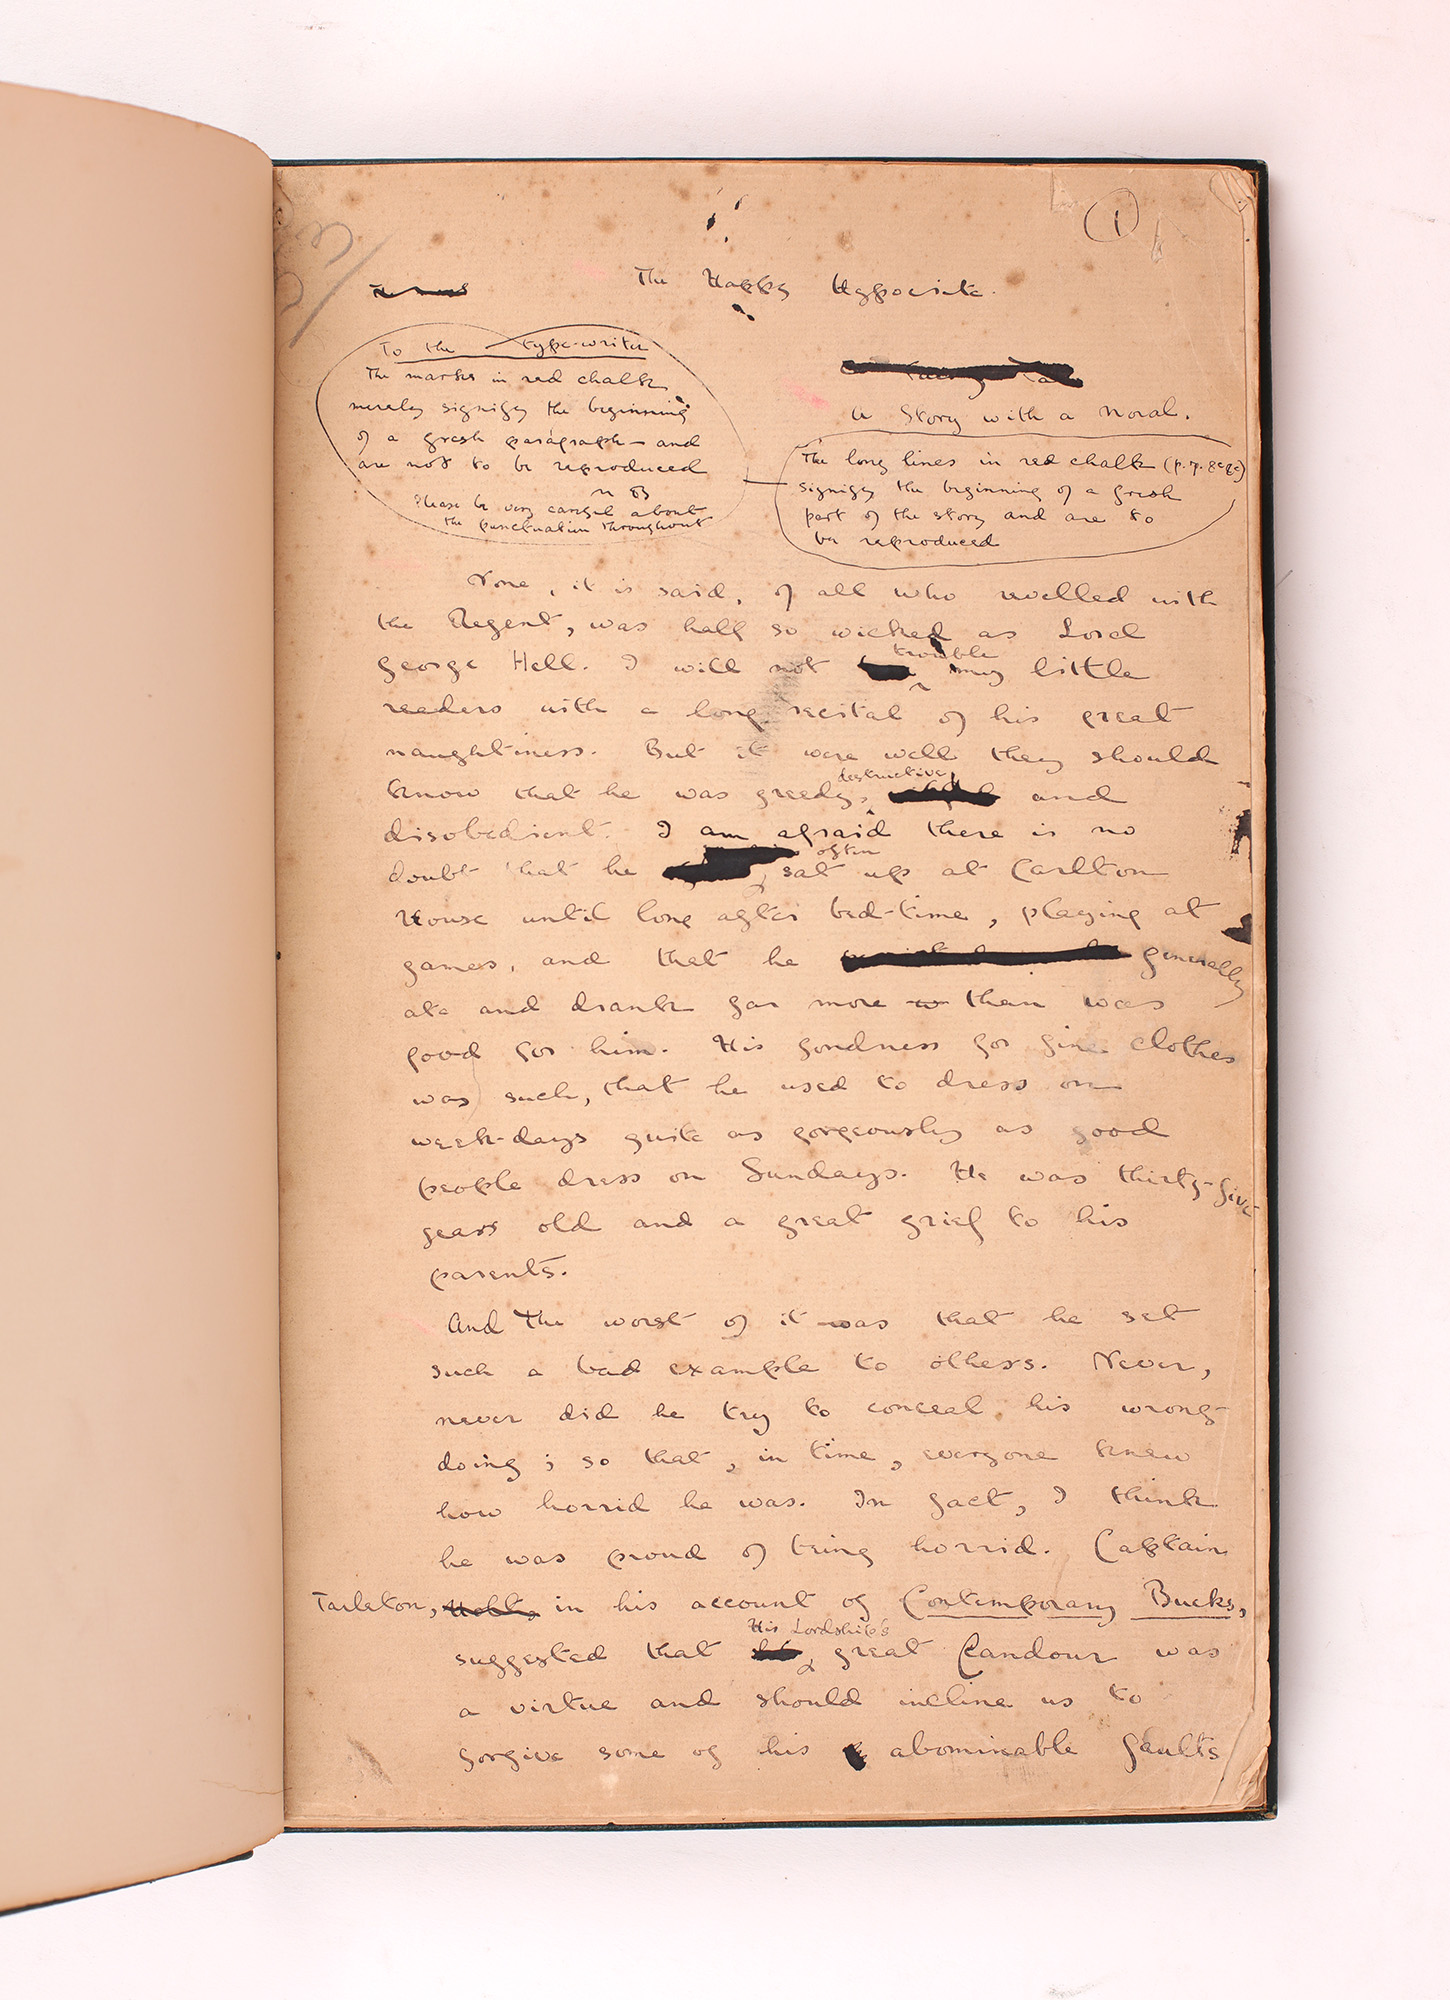 1
The Happy Hypocrite.
To the type-writer
The marks in red chalk
merely signify the beginning
of a fresh paragraph — and
are not to be reproduced
Please be very careful about
the punctuation throughout
A Story with a Moral.
The long lines in red chalk
signify the beginning of a fresh
part of the story and are to
be reproduced
None, it is said, of all who revelled with
the Regent, was half so wicked as Lord
George Hell. I will not trouble my little
readers with a long recital of his great
naughtiness. But it were well they should
know that he was greedy, destructive, and
disobedient. I am afraid there is no
doubt that he often sat up at Carlton
House until long after bed-time, playing at
games, and that he generally
ate and drank far more than was
good for him. His fondness for fine clothes
was such, that he used to dress on
week-days quite as gorgeously as good
people dress on Sundays. He was thirty-five
years old and a great grief to his
parents.
And the worst of it was that he set
such a bad example to others. Never,
never did he try to conceal his wrong-
doing; so that, in time, everyone knew
how horrid he was. In fact, I think
he was proud of being horrid. Captain
Tarleton, in his account of Contemporary Bucks,
suggested that His Lordship's great Candour was
a virtue and should incline us to
forgive some of his abominable faults